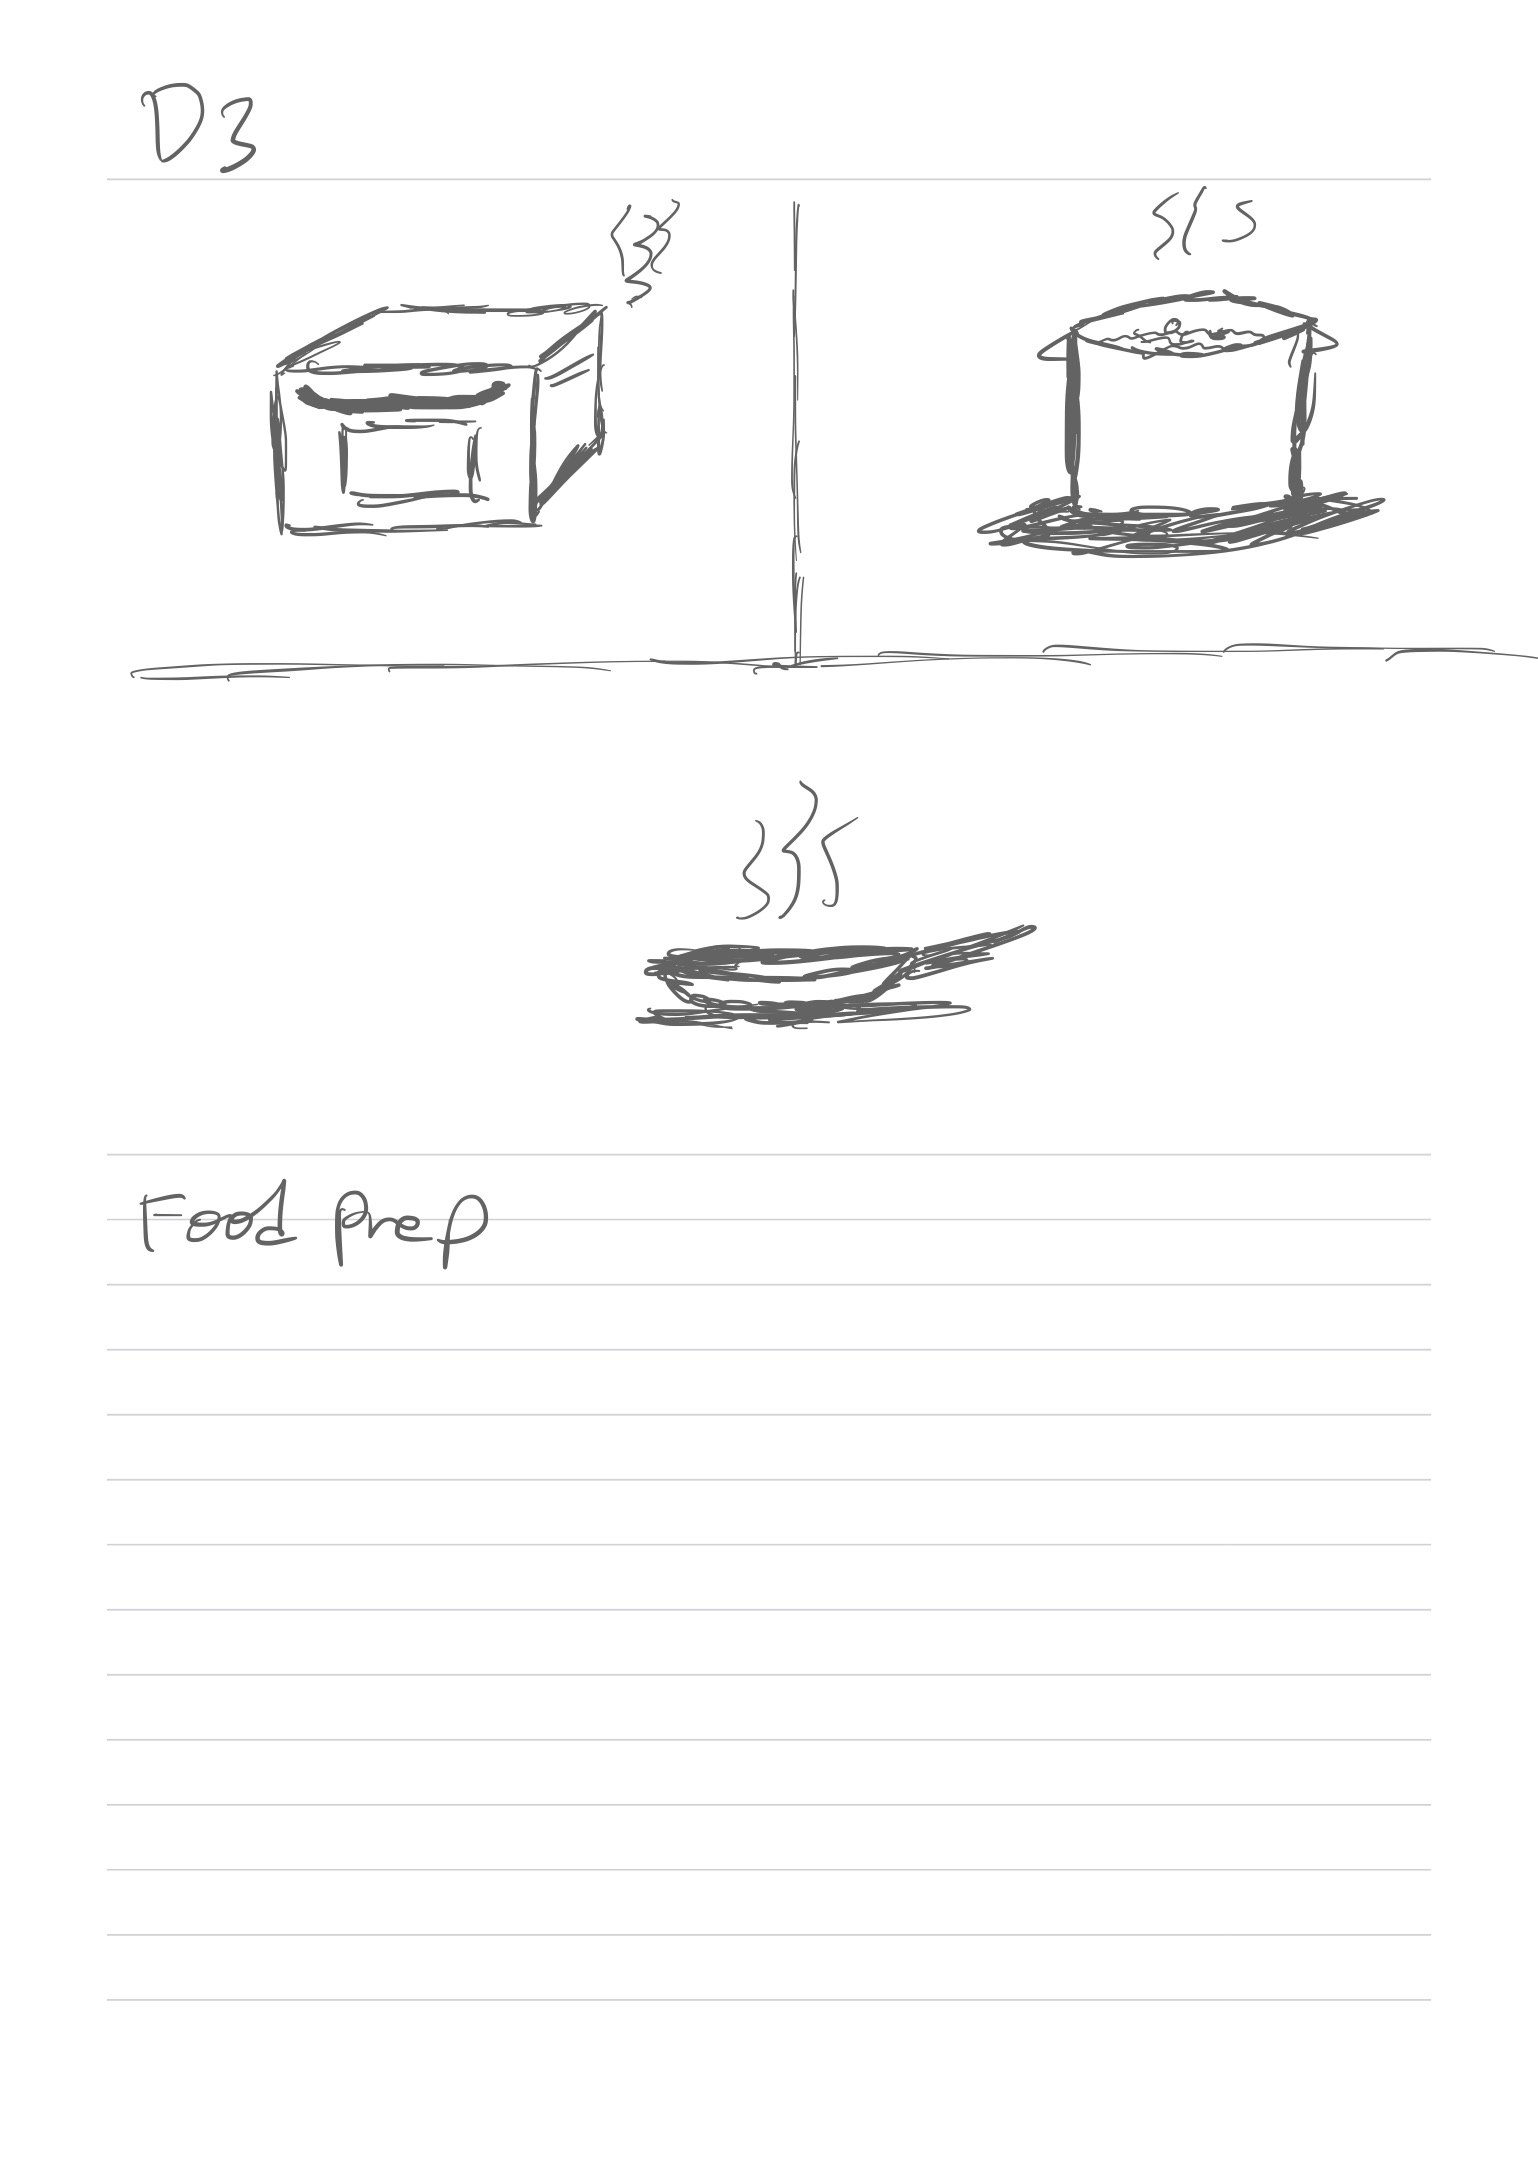 D3
Food prep